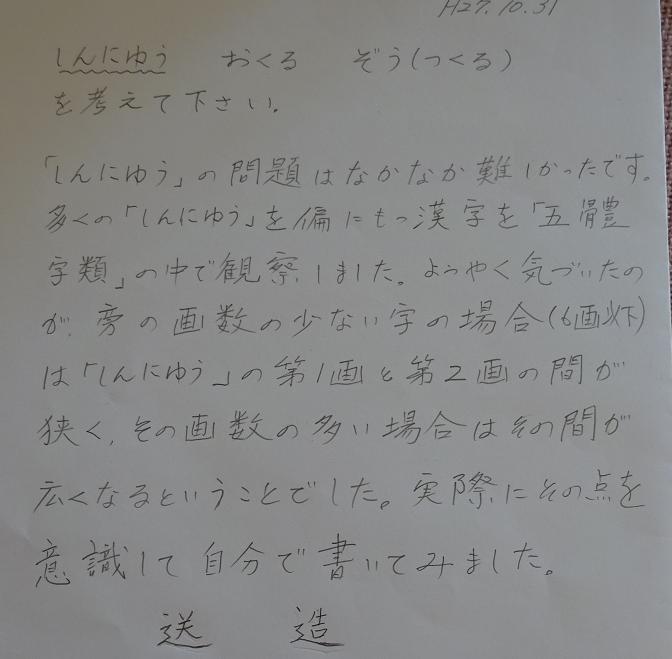 H27.10.31
しんにゆう　おくる　ぞう(つくる)
を考えて下さい。
「しんにゆう」の問題はなかなか難しかったです。
多くの「しんにゆう」を偏にもつ漢字を「五體
字類」の中で観察しました。ようやく気づいたの
が、旁の画数の少ない字の場合(6画以下)
は「しんにゆう」の第1画と第2画の間が
狭く、その画数の多い場合はその間が
広くなるということでした。実際にその点を
意識して自分で書いてみました。
送　造